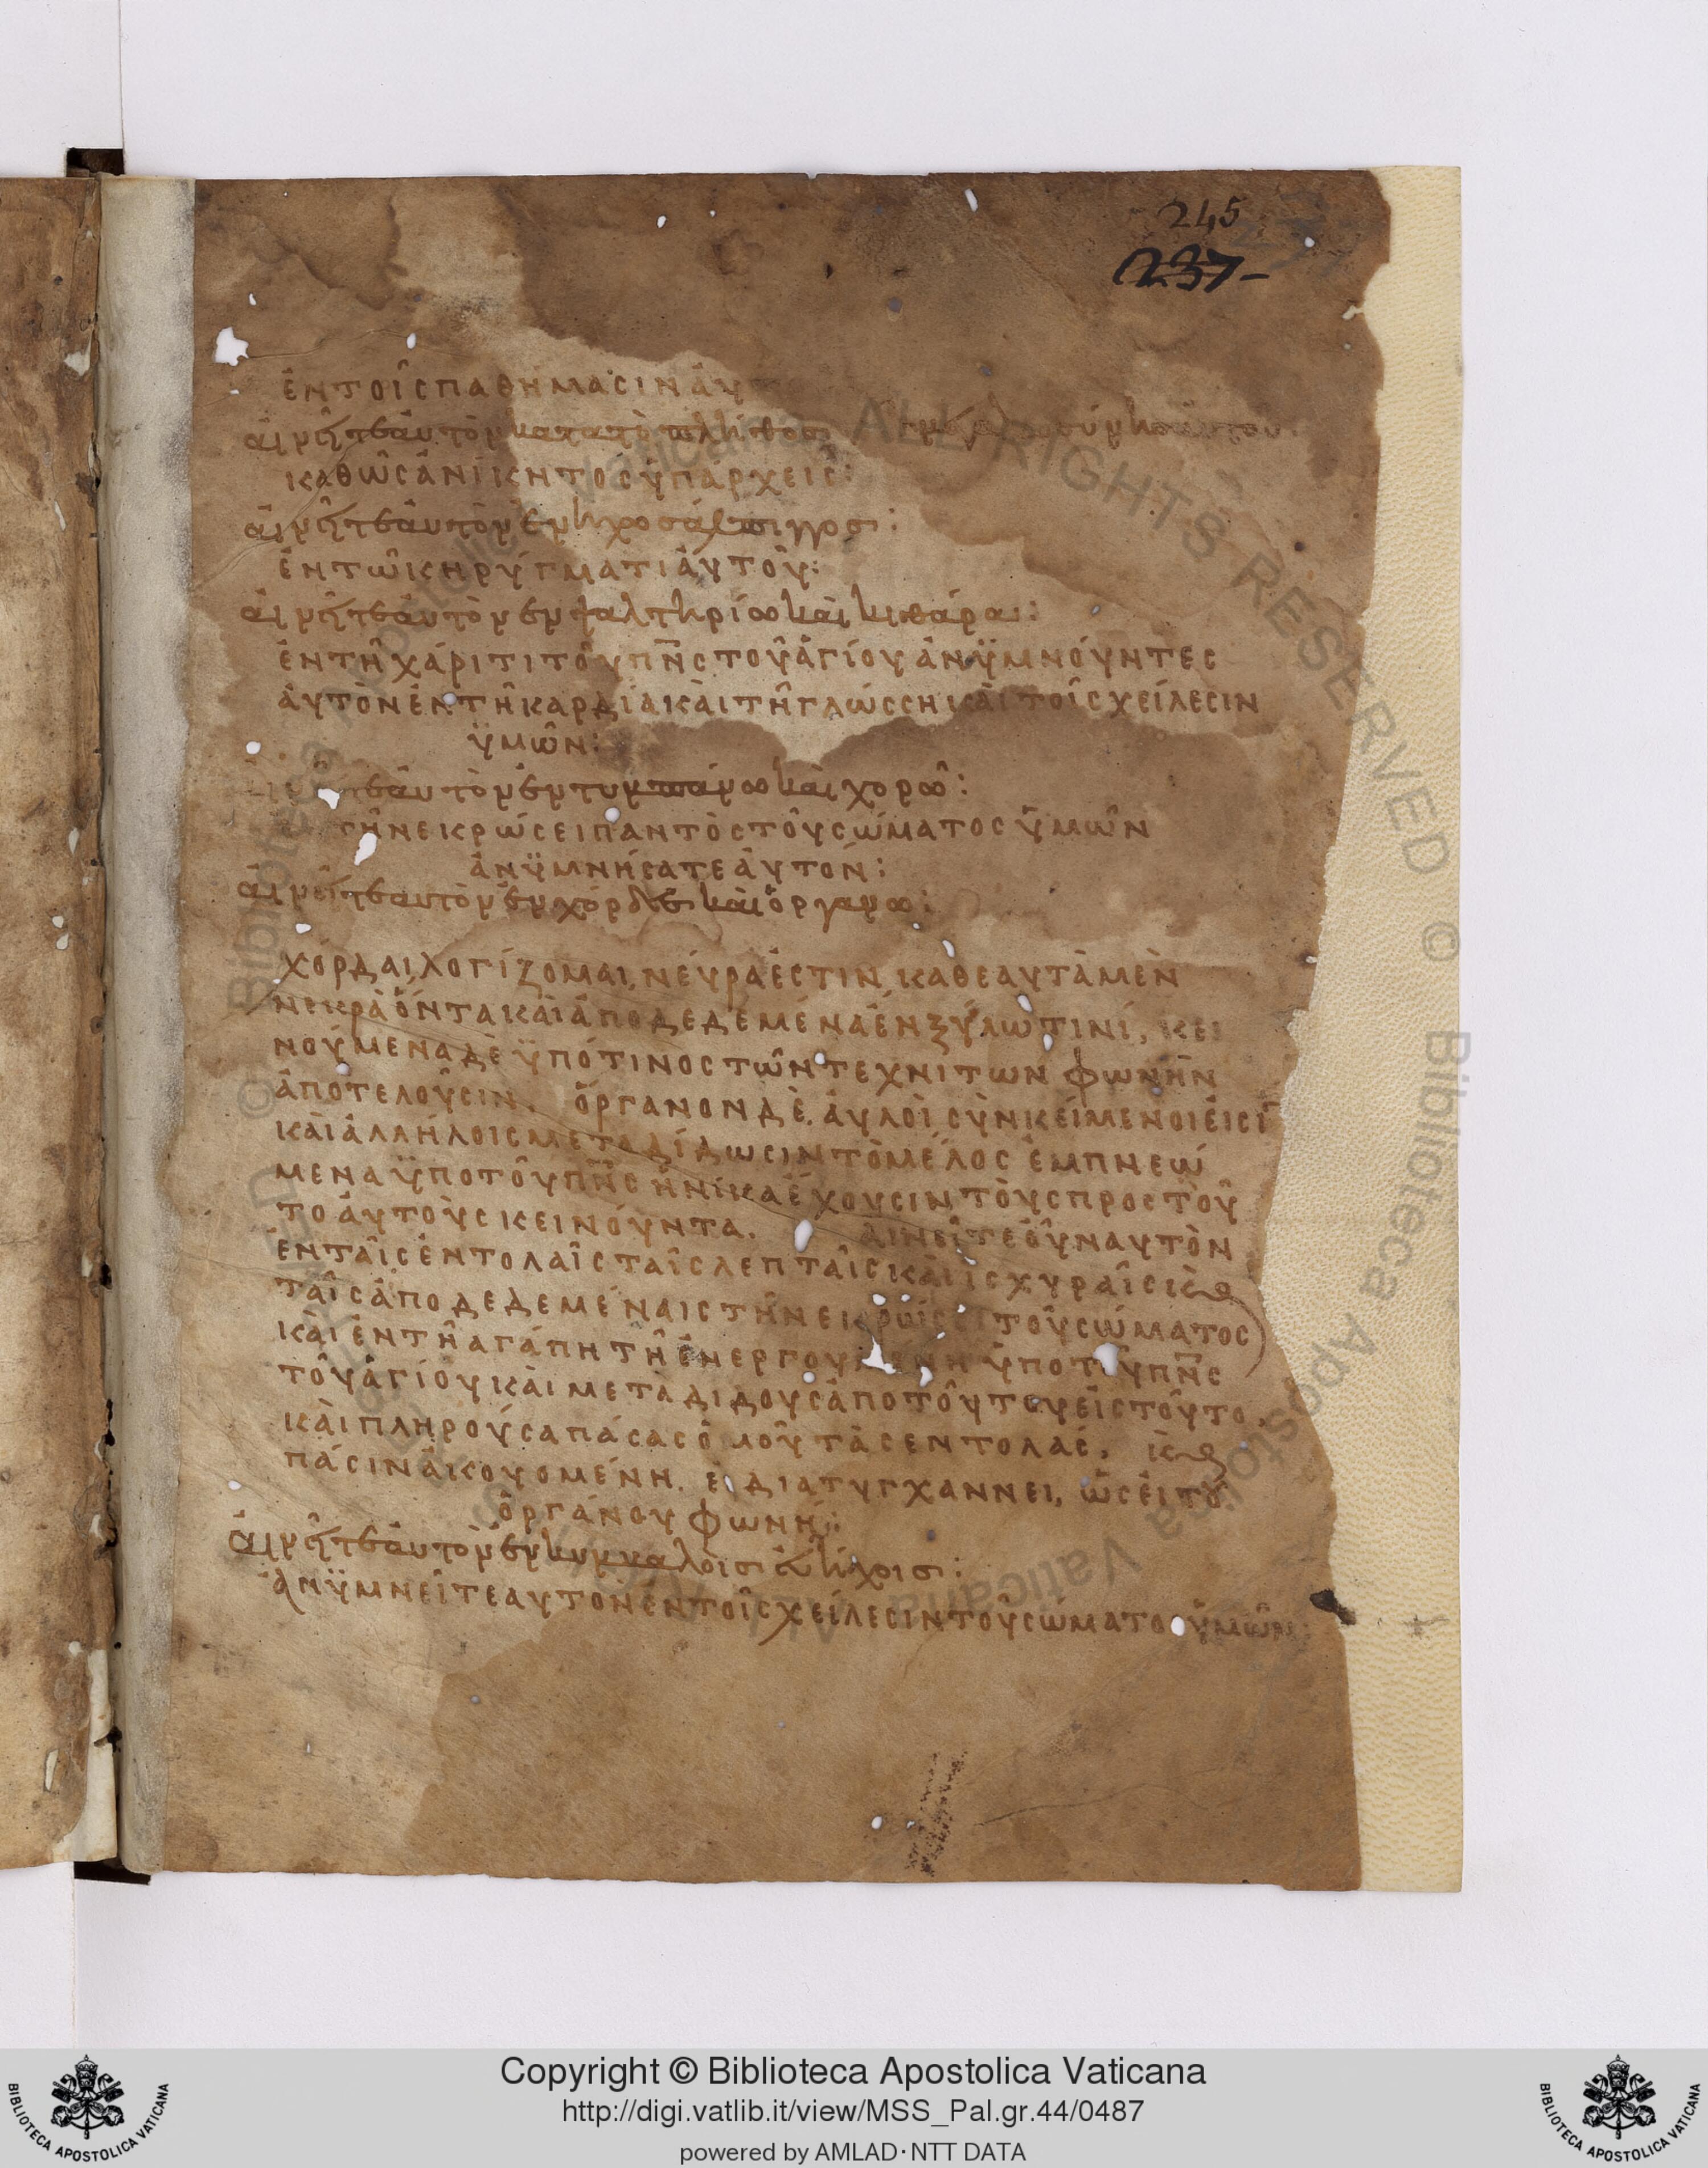 245
237-
ἐν τοῖς παθήμασιν αὐ
αἰνεῖτε αὐτὸν κατὰ τὸ πλῆθος τῆς μεγαλωσύνης αὐτοῦ:
καθὼς ἀνίκητος ὑπάρχεις:
αἰνεῖτε αὐτὸν ἐν ἤχο σάλπιγγος:
ἐν τῶ κηρύγματι αὐτοῦ:
αἰνεῖτε αὐτὸν ἐν ψαλτηρίω καὶ κιθάρα:
ἐν τῆ χάριτι τοῦ πν̅ς τοῦ ἁγίου ἀνϋμνοῦντες
αὐτὸν ἐν τῆ καρδία καὶ τῆ γλώσση καὶ τοῖς χείλεσιν
ϋμῶν:
αἰνεῖτε αὐτὸν ἐν τυμπάνω καὶ χορῶ:
τῆ νεκρώσει παντὸς τοῦ σώματος ϋμῶν
ἀνϋμνήσατε αὐτόν:
αἰνεῖτε αὐτὸν ἐν χόρδες καὶ ὀργανω:
χόρδαι, λογίζομαι, νεύρα ἐστιν, καθεαυτὰ μὲν
νεκρὰ ὄντα καὶ ἀποδεδεμένα ἐν ξύλω τινί, κει
νούμενα δὲ ϋπό τινος τῶν τεχνιτων φωνὴν
ἀποτελοῦσιν. ὄργανον δὲ, αὐλοὶ σὺνκείμενοι εἰσὶ
καὶ ἀλλήλοις μεταδίδωσιν τὸ μέλος ἐμπνεώ
μενα ϋπο τοῦ πν̅ς ἡνίκα ἔχουσιν τοὺς προς τοῦ
το αὐτοὺς κεινοῦντα. αἰνεῖτε οὖν αυτὸν
ἐν ταῖς ἐντολαῖς ταῖς λεπταῖς καὶ ἰσχυραῖς κ(αὶ)
ταῖς ἀποδεδεμέναις τῆ νεκρώσει τοῦ σώματος
καὶ ἐν τῆ αγάπη τῆ ἐνεργουμένη ὑπο τοῦ πν̅ς
τοῦ ἁγίου καὶ μεταδιδουσ ἀπο τοῦτου εἰς τοῦτο.
καὶ πληροῦσα πάσας ὁμοῦ τὰς εντολάς, κ(αὶ)
πάσιν ἀκουομένη. ἐ διατυγχαννει, ὡσεὶ του
ὀργάνου φωνή:
αἰνεῖτε αὐτὸν ἐν κυμβάλοισ εὐήχοισ:
ἀνϋμνεῖτε αυτὸν ἐν τοῖς χείλεσιν τοῦ σωματο ϋμῶν:
Copyright © Biblioteca Apostolica Vaticana
http://digi.vatlib.it/view/MSS_Pal.gr.44/0487
powered by AMLAD·NTT DATA
BIBLIOTECA APOSTOLICA VATICANA
BIBLIOTECA APOSTOLICA VATICANA